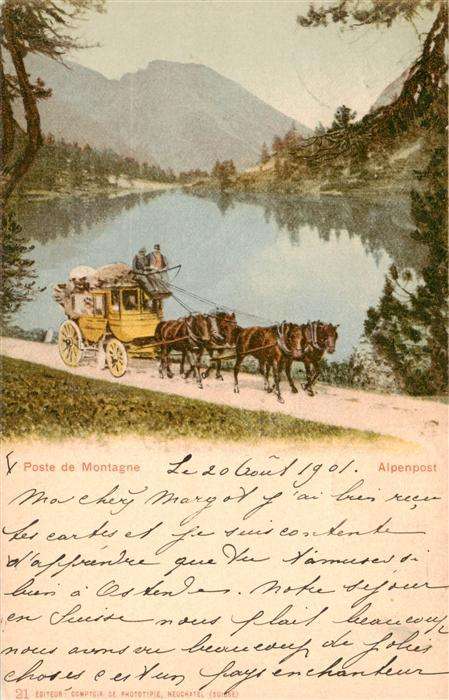 Poste de Montagne
Le 20 Août 1901.
Alpenpost
Ma chère Margot j'ai bien reçu
tes cartes et je suis contente
d'apprendre que tu t'amuses si
bien à Ostende. Notre séjour
en Suisse nous plait beaucoup
nous avons vu beaucoup de jolies
choses c'est un pays enchanteur
21 EDITEUR: COMPTOIR DE PHOTOTYPIE, NEUCHATEL (SUISSE)